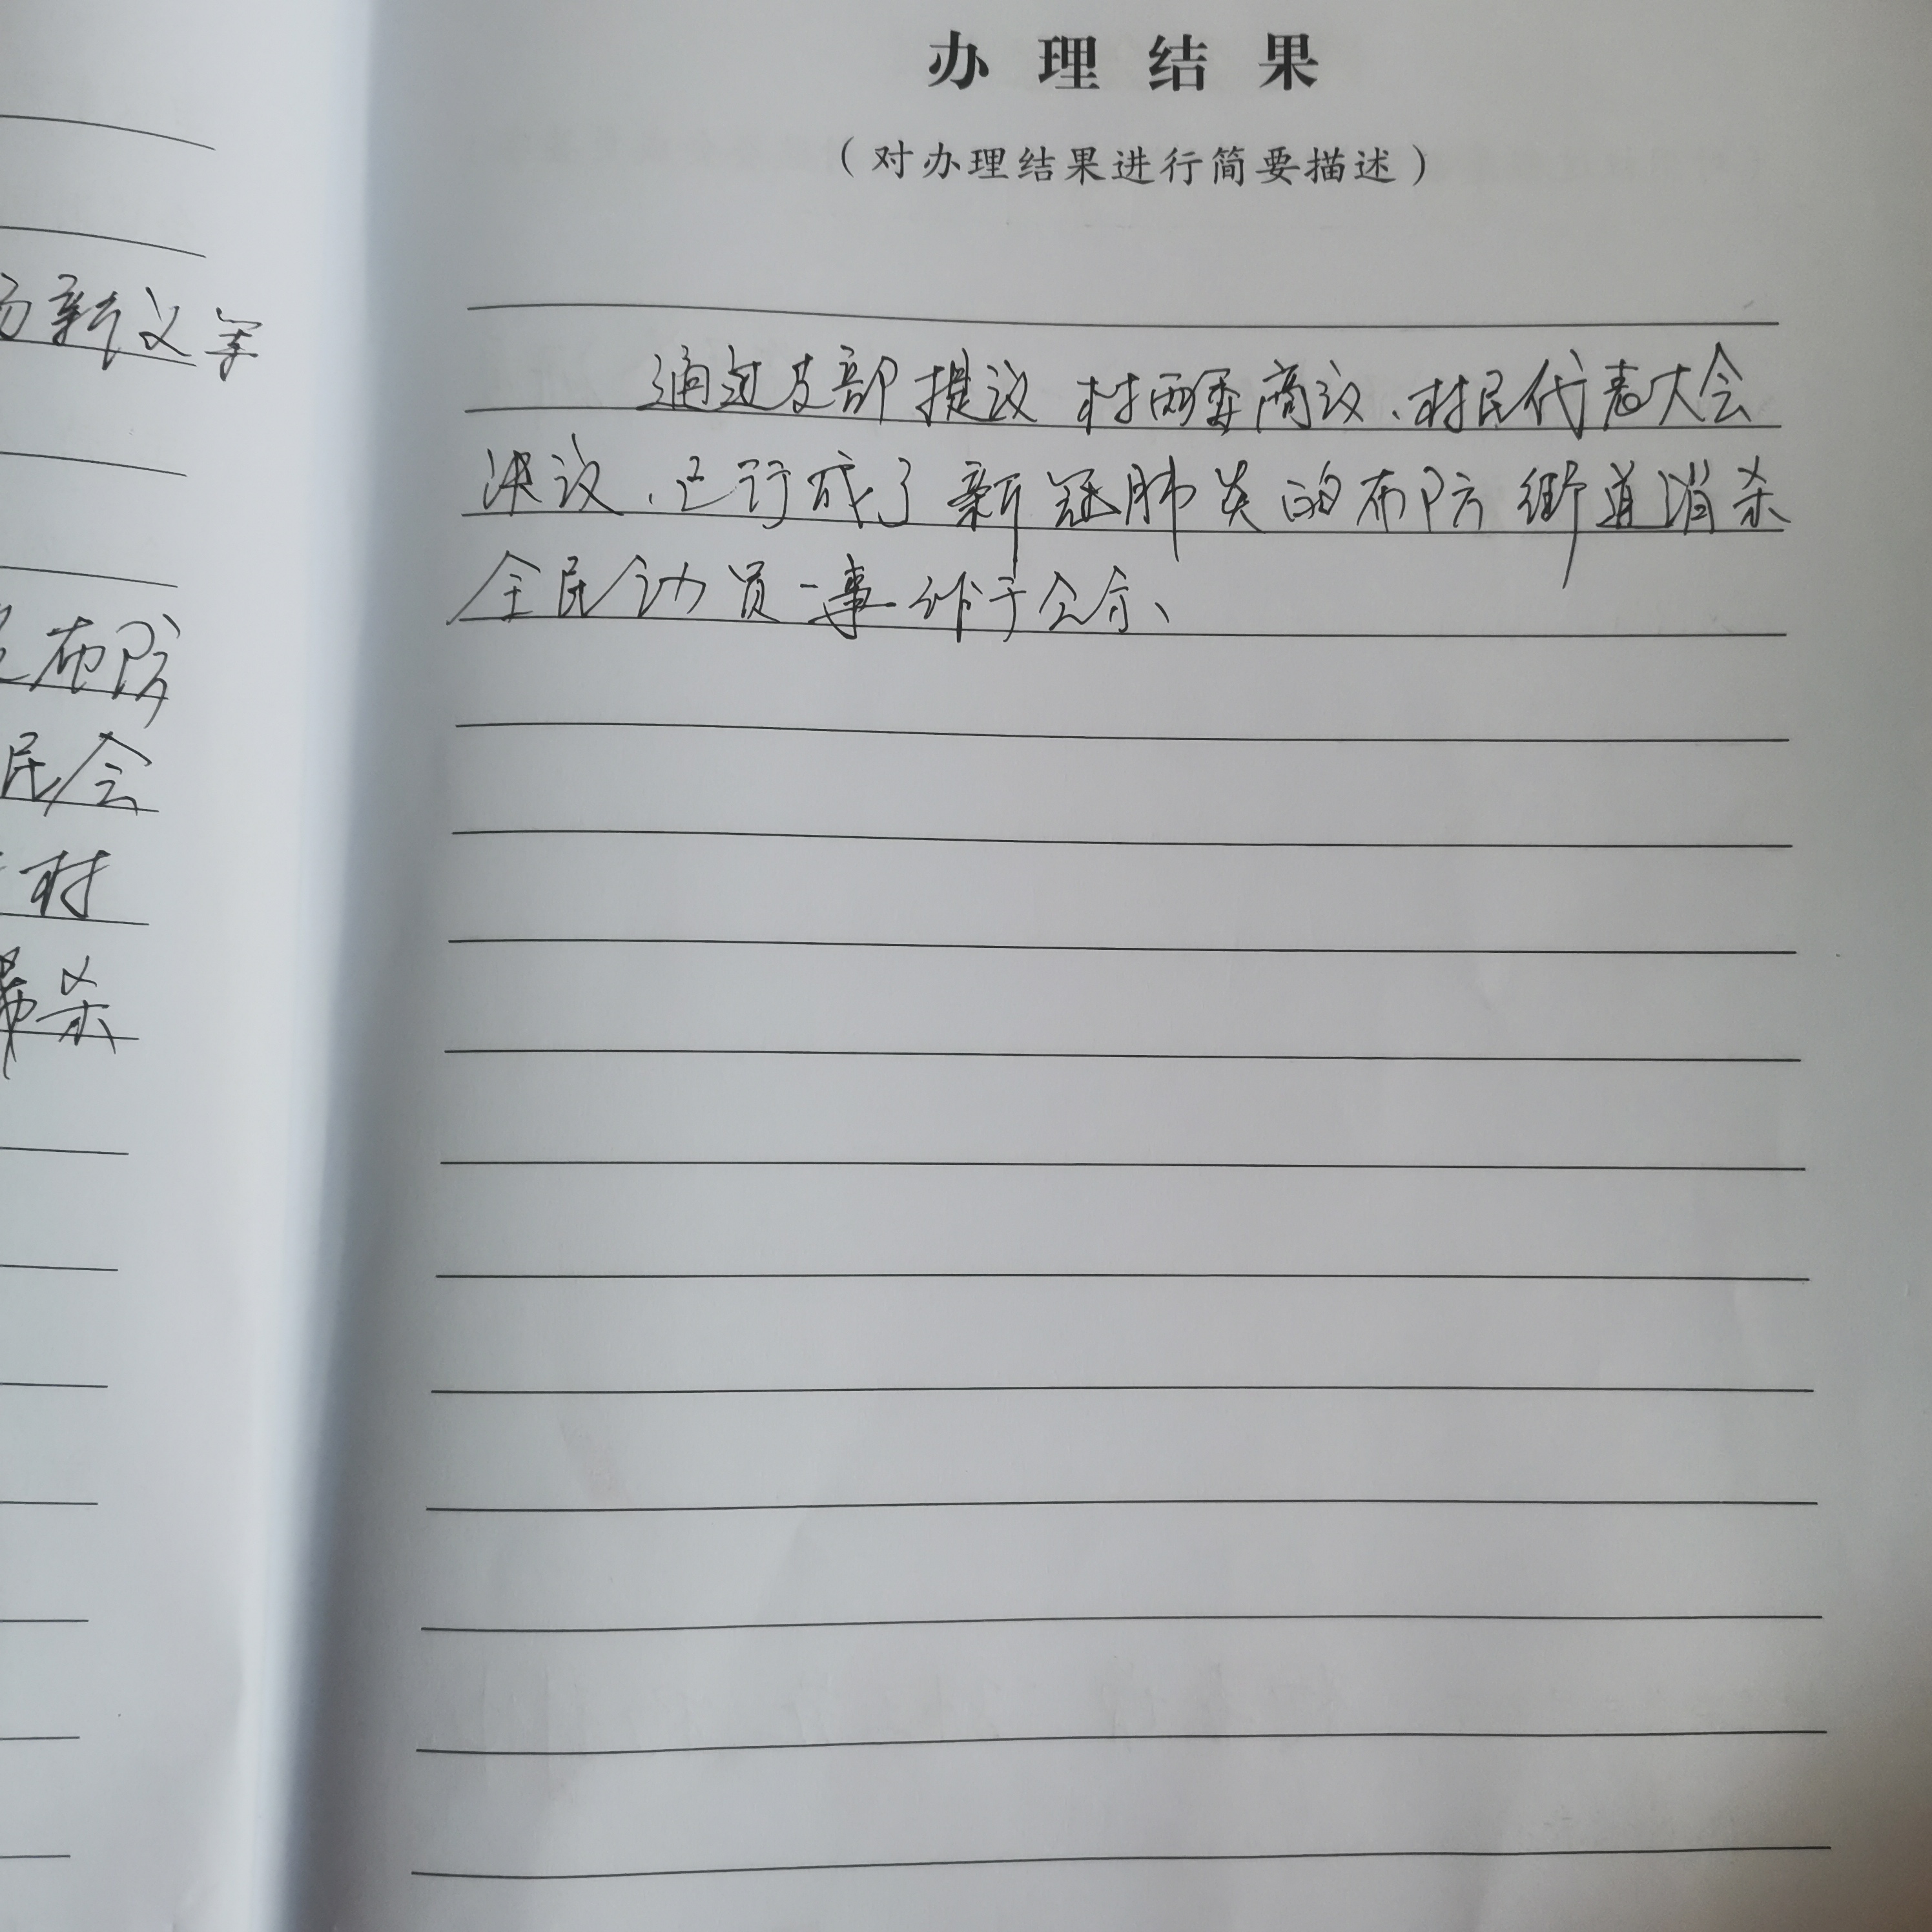 办理结果
（对办理结果进行简要描述）
通过支部提议 村两委商议、村民代表大会
决议、已订成了新冠肺炎的布防 街道消杀
全民动员一事 作于公示、
新文军
布防
民会
村
杀